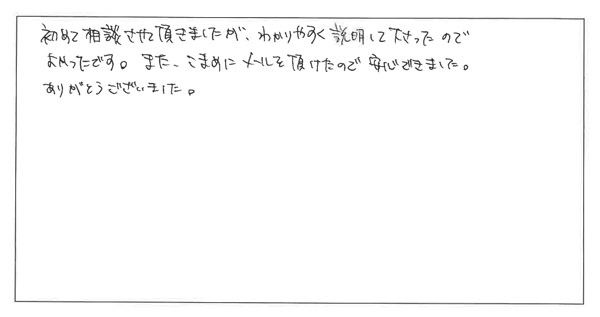 初めて相談させて頂きましたが、わかりやすく説明して下さったので
よかったです。また、こまめにメールを頂けたので安心できました。
ありがとうございました。